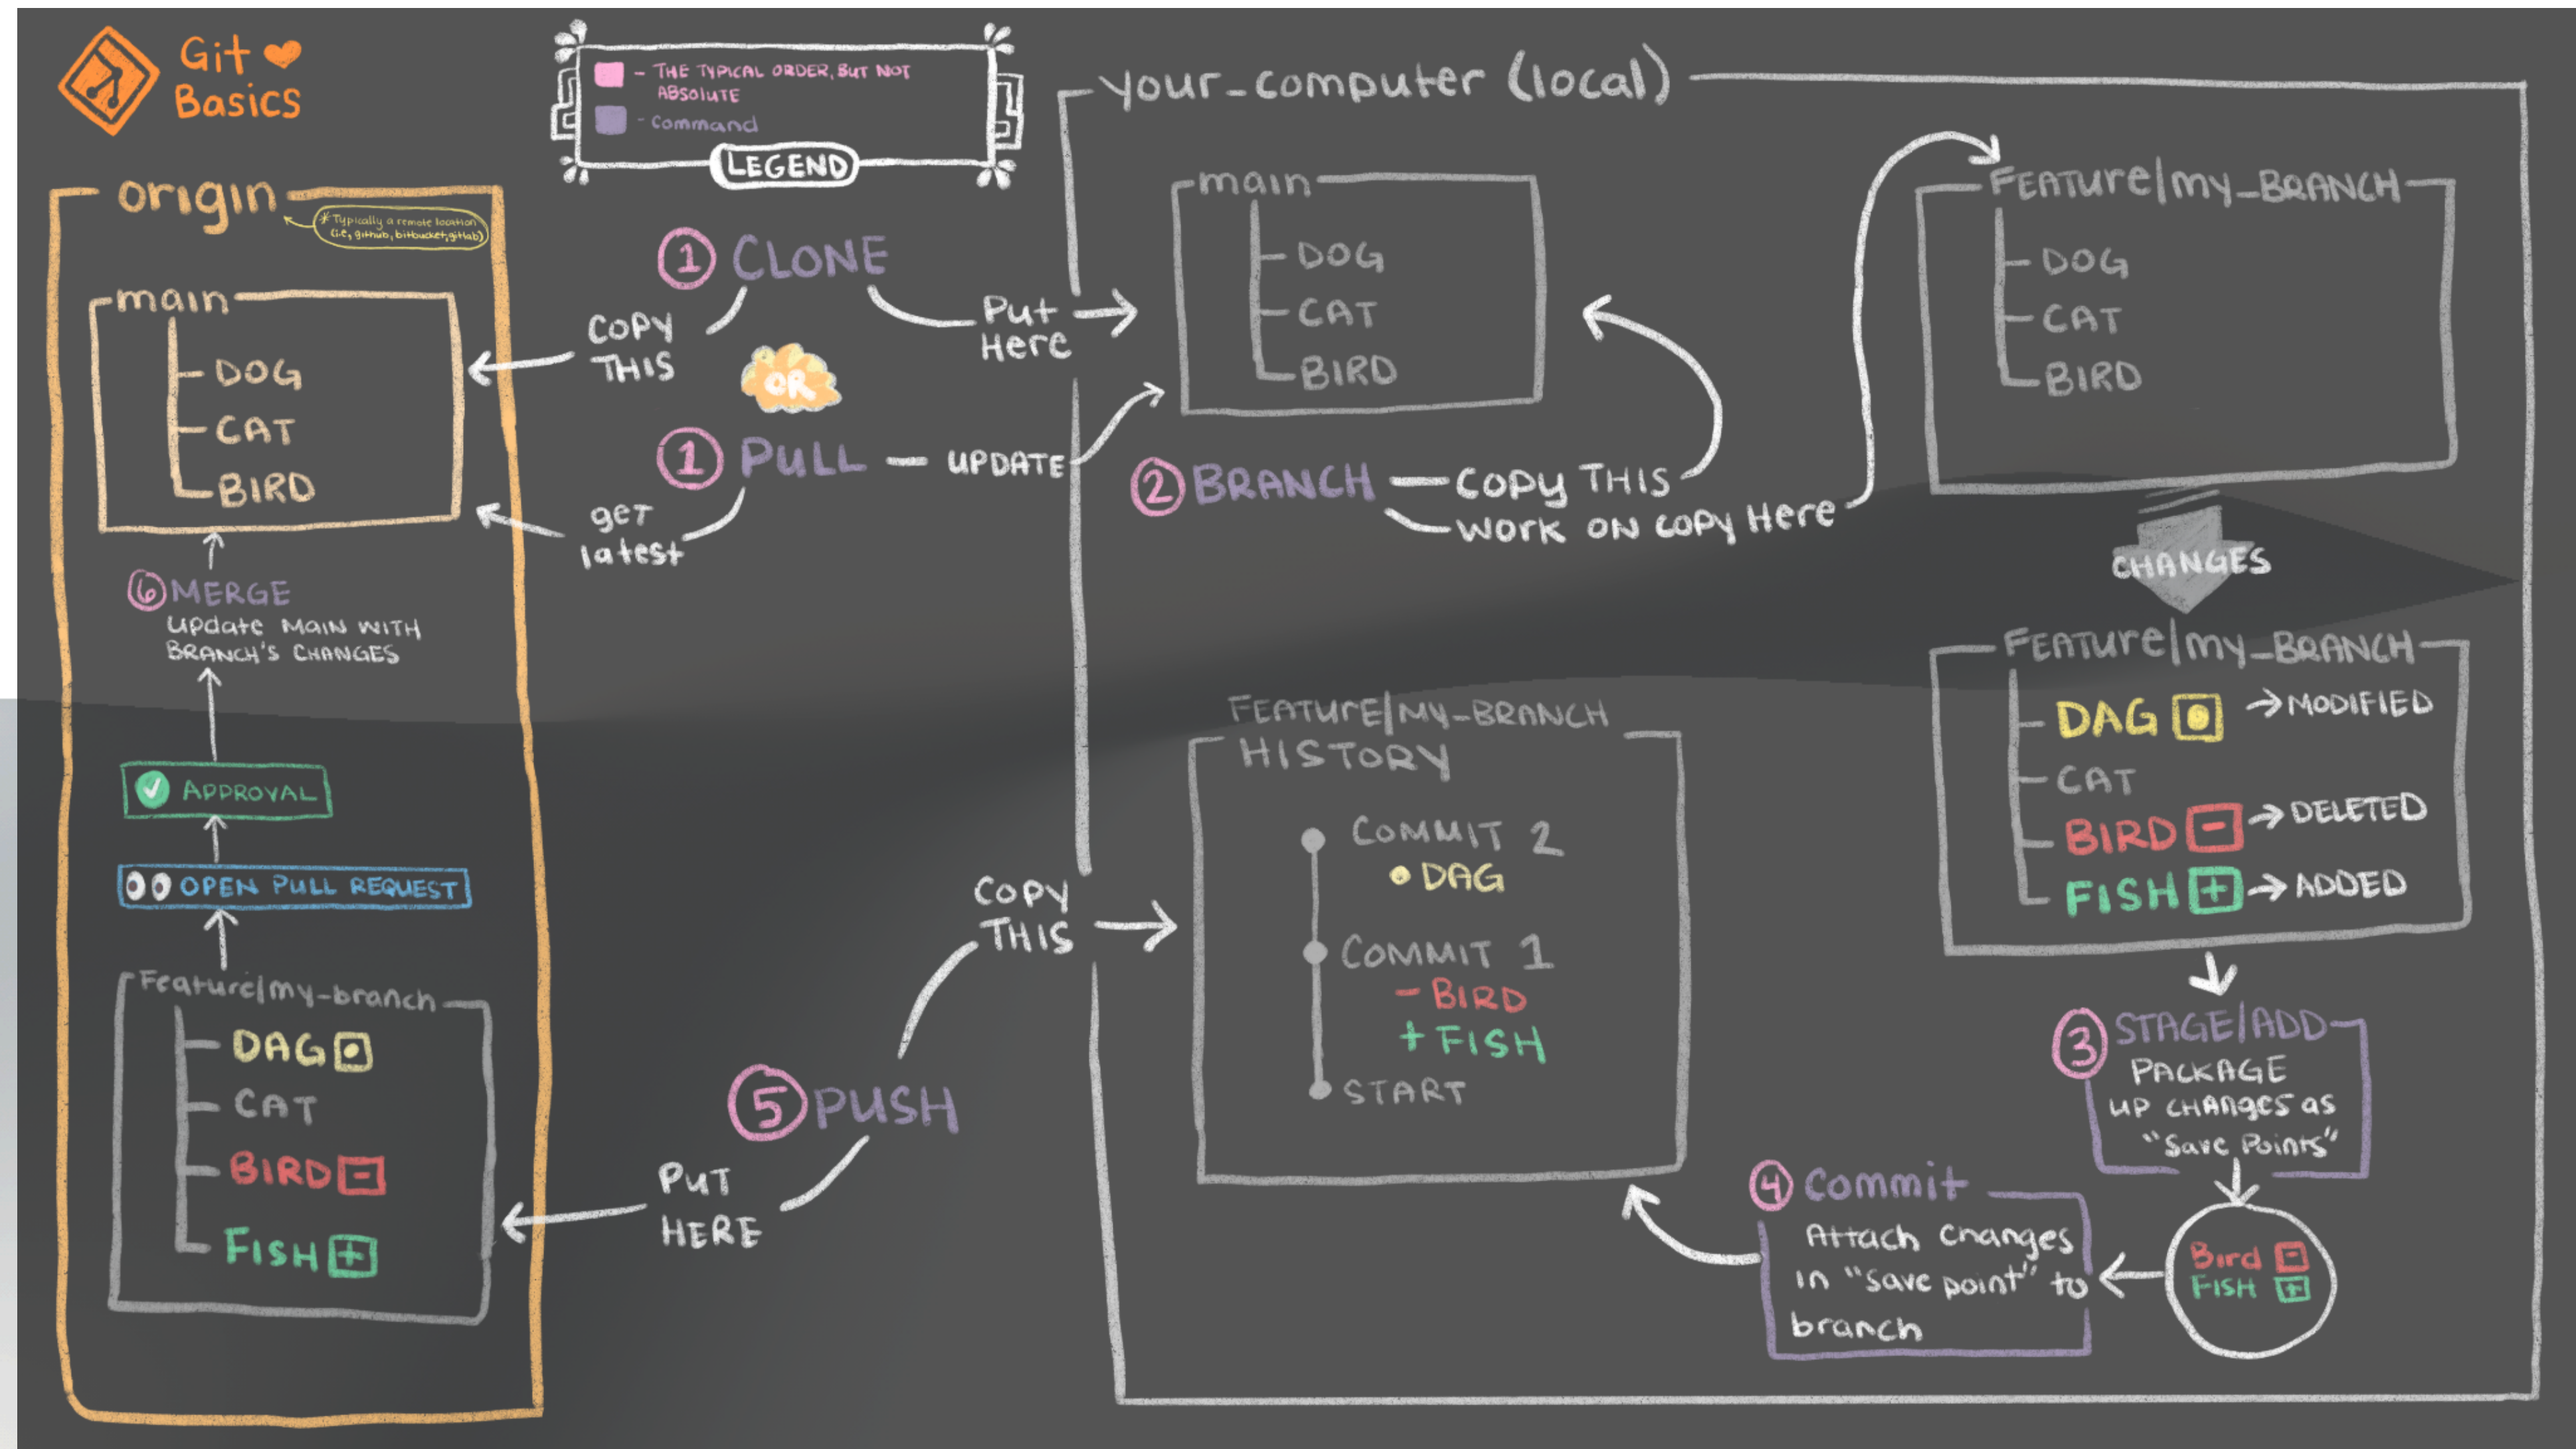 Git
Basics
- THE TYPICAL ORDER, BUT NOT
ABSOLUTE
- Command
LEGEND
origin
* Typically a remote location
(i.e, github, bitbucket, gitlab)
main
DOG
CAT
BIRD
6 MERGE
update MAIN WITH
BRANCH'S CHANGES
APPROVAL
OPEN PULL REQUEST
Feature/my-branch
DAG
CAT
BIRD -
FISH +
1 CLONE
COPY
THIS
Put
Here
OR
1 PULL - UPDATE
get
latest
your_computer (local)
main
DOG
CAT
BIRD
2 BRANCH - COPY THIS
WORK ON COPY Here
FEATure/my_BRANCH
DOG
CAT
BIRD
CHANGES
FEATure/my_BRANCH
DAG → MODIFIED
CAT
BIRD - → DELETED
FISH + → ADDED
3 STAGE/ADD
PACKAGE
UP CHANges as
"Save Points"
Bird -
FISH +
4 Commit
Attach Changes
in "save point" to
branch
FEATURE/MY-BRANCH
HISTORY
COMMIT 2
• DAG
COMMIT 1
- BIRD
+ FISH
START
5 PUSH
COPY
THIS
PUT
HERE